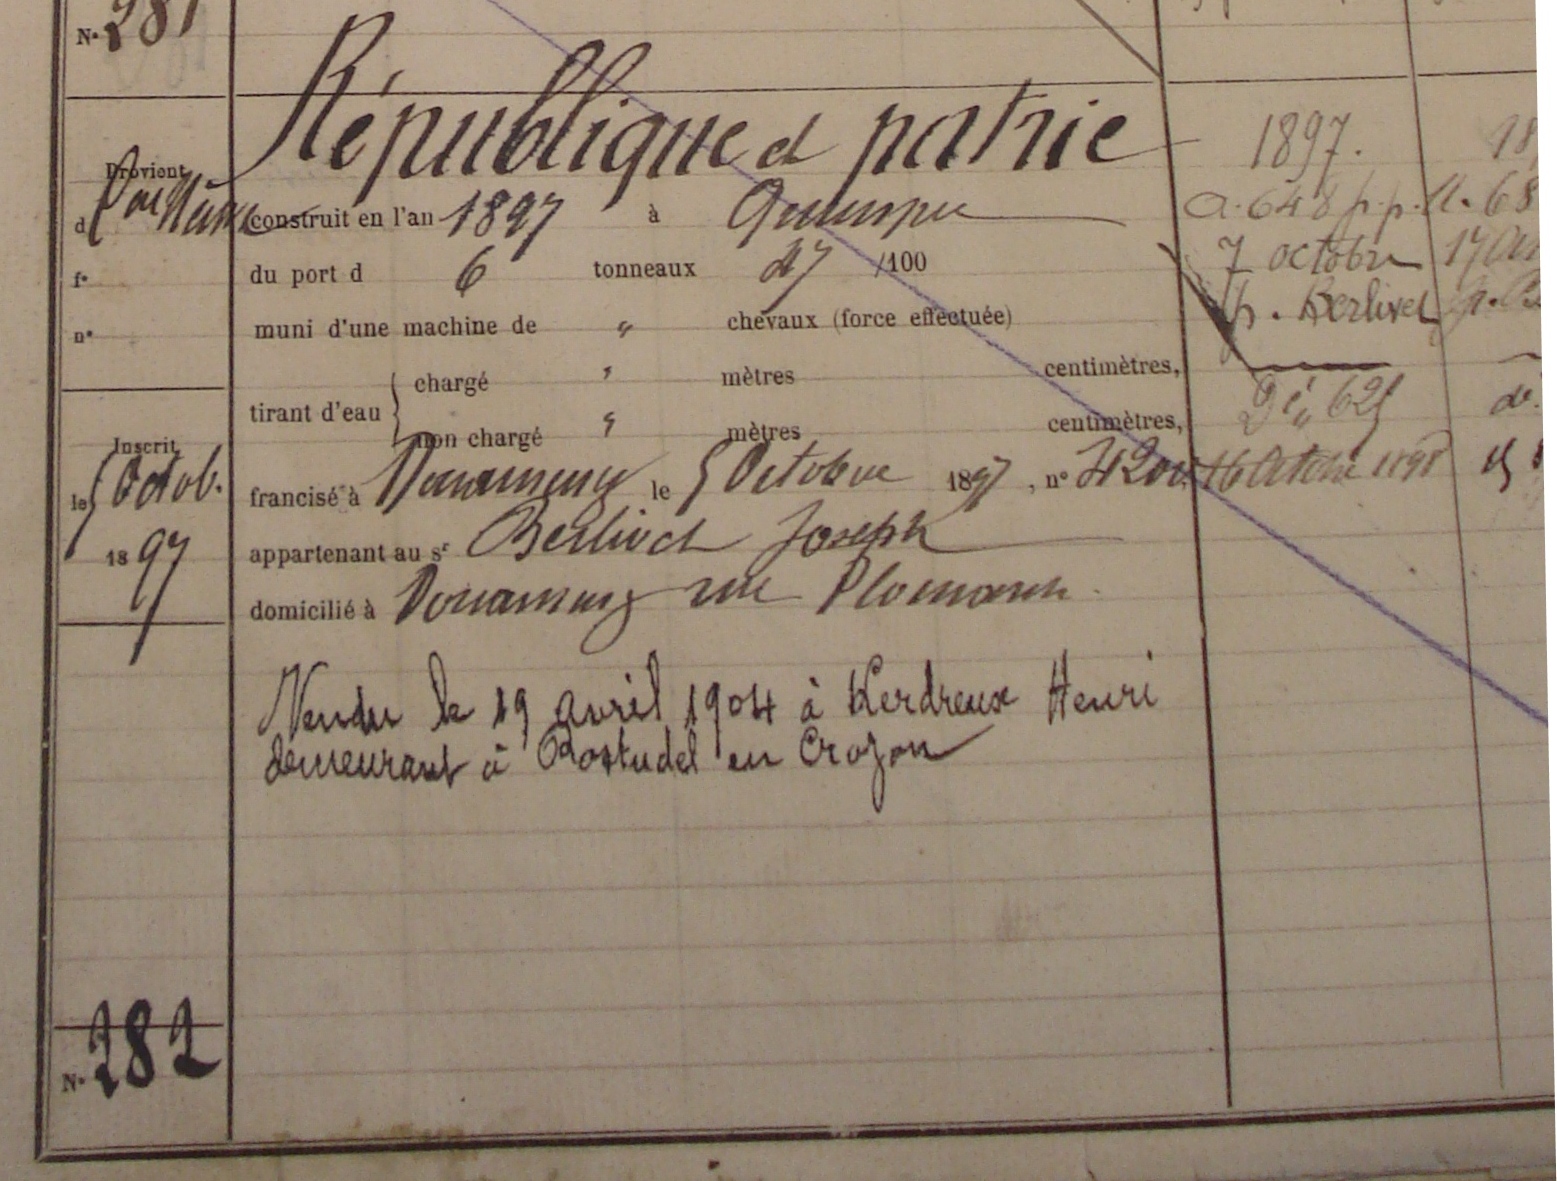 N° 281
République et patrie
Provient
d
construit en l'an 1897 à Quimper
f°
du port d 6 tonneaux 27 /100
n°
muni d'une machine de " chevaux (force effectuée)
tirant d'eau
chargé " mètres centimètres,
non chargé " mètres centimètres,
Inscrit
le 5 Octob.
1897
francisé à Douarnenez le 5 Octobre 1897, n°
appartenant au sr Berlivet Joseph
domicilié à Douarnenez rue Plomarch
Vendu le 19 avril 1904 à Kerdreux Henri
demeurant à Rostudel en Crozon
N° 282
1897.
a. 648 p.p.
7 octobre
p. Berlivet
Dé 625
16 Octobre 1898
18
17